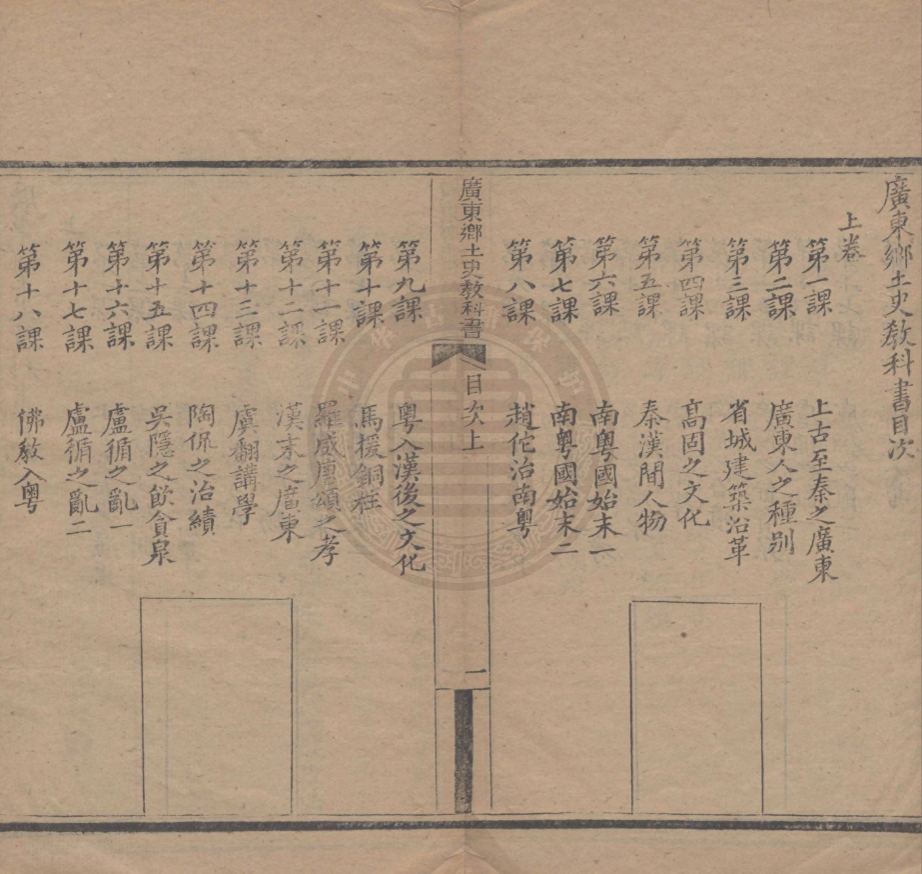 廣東鄉土史教科書目次
上卷
第一課 上古至秦之廣東
第二課 廣東人之種别
第三課 省城建築沿革
第四課 高固之文化
第五課 秦漢間人物
第六課 南粤國始末一
第七課 南粤國始末二
第八課 趙佗治南粤
廣東鄉土史教科書 目次上 一
第九課 粤入漢後之文化
第十課 馬援銅柱
第十一課 羅威唐頌之孝
第十二課 漢末之廣東
第十三課 虞翻講學
第十四課 陶侃之治績
第十五課 吳隱之飲貪泉
第十六課 盧循之亂一
第十七課 盧循之亂二
第十八課 佛教入粤